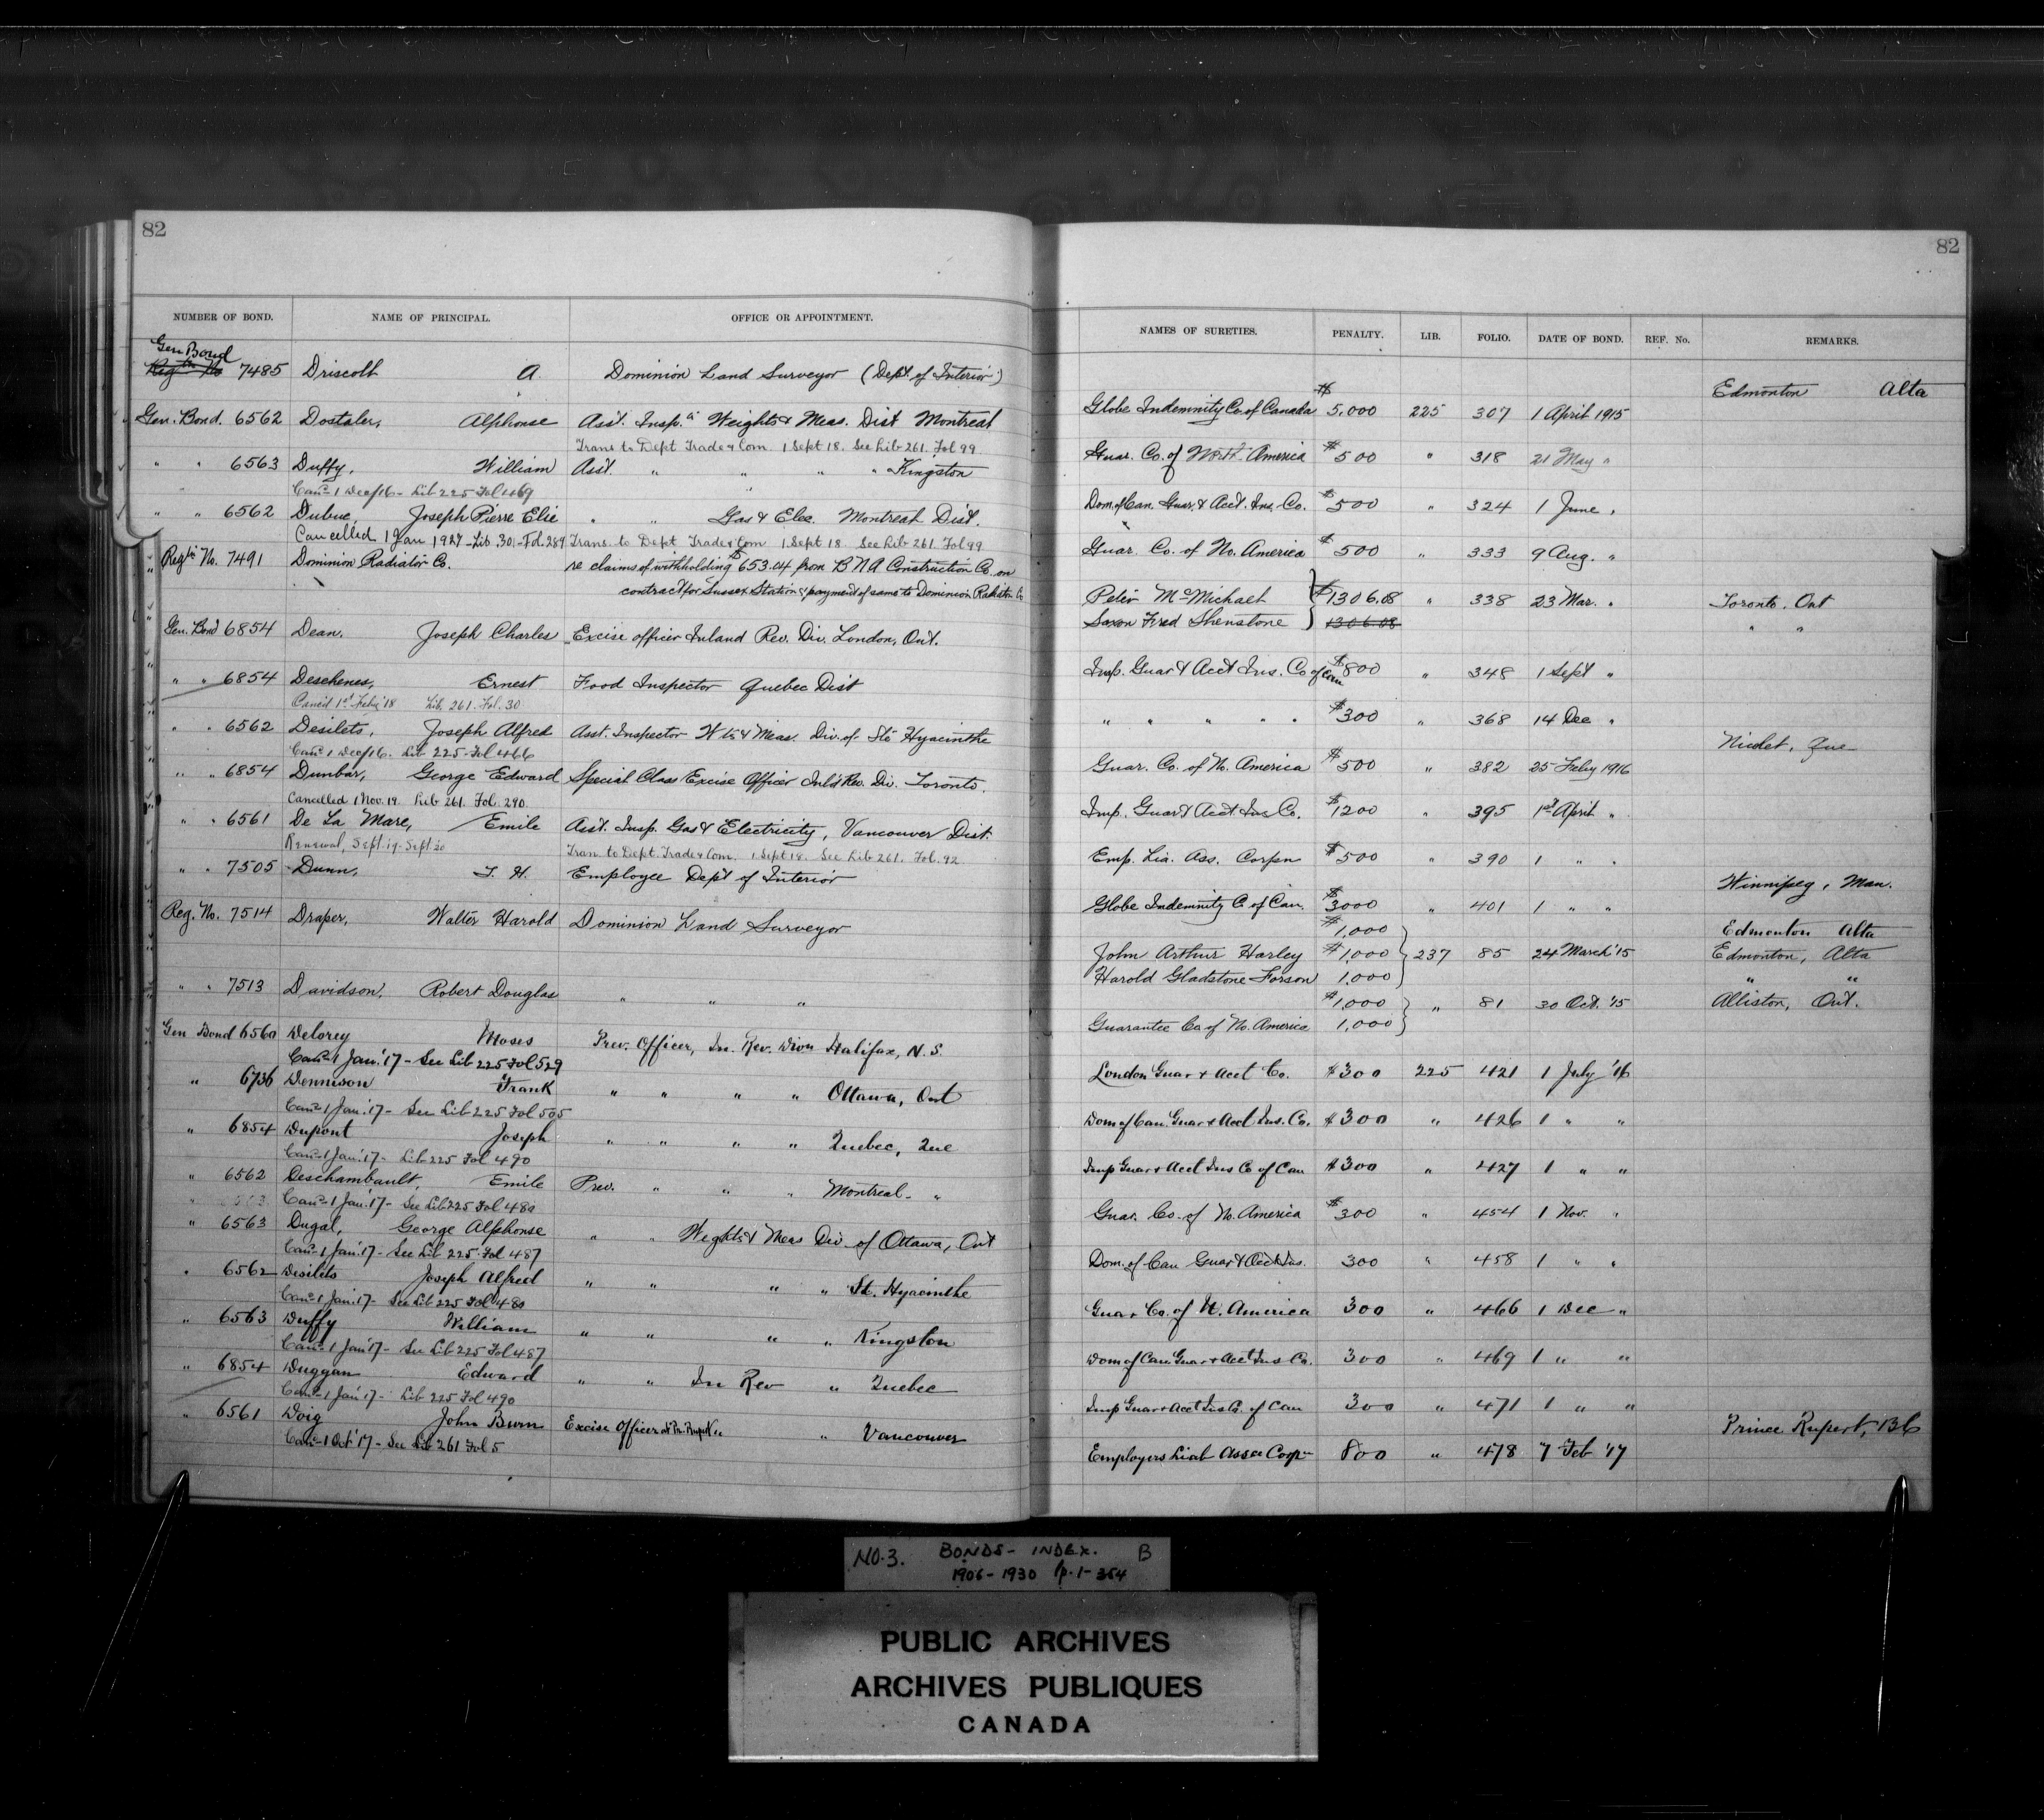 82
NUMBER OF BOND. NAME OF PRINCIPAL. OFFICE OR APPOINTMENT.
Gen Bond
7485 Driscoll A. Dominion Land Surveyor (Dept. of Interior)
Gen. Bond. 6562 Dostaler, Alphonse Asst. Insp. Weights & Meas. Dist Montreal
Trans to Dept Trade & Com 1 Sept 18. See Lib 261. Fol 99
" " 6563 Duffy, William Asst. " " " " Kingston
Canc 1 Dec/16 - Lib 225 Fol 469
" " 6562 Dubuc, Joseph Pierre Elie " " Gas & Elec. Montreal Dist.
Cancelled 1 Jan 1927 - Lib. 301 - Fol. 289 Trans. to Dept Trade & Com 1 Sept 18 See Lib 261. Fol 99
Regtn No. 7491 Dominion Radiator Co. re claims of withholding $653.04 from B N A Construction Co. on
contract for Sussex Station & payment of same to Dominion Radiator Co
Gen. Bond 6854 Dean, Joseph Charles Excise officer Inland Rev. Div. London, Ont.
" " 6854 Deschenes, Ernest Food Inspector Quebec Dist
Canc'd 1st Feby '18 Lib. 261. Fol. 30
" " 6562 Desilets, Joseph Alfred Asst. Inspector Wts & Meas. Div. of Ste Hyacinthe
Canc 1 Dec/16. Lib 225 - Fol 466
" " 6854 Dunbar, George Edward Special Class Excise Officer Inl'd Rev. Div. Toronto.
Cancelled 1 Nov. 19. Lib 261. Fol. 290.
" " 6561 De La Mare, Emile Asst. Insp. Gas & Electricity, Vancouver Dist.
Renewal, Sept. 19 - Sept. 20 Tran. to Dept. Trade & Com. 1 Sept 18. See Lib 261. Fol. 92
" " 7505 Dunn, T. H. Employee Dept of Interior
Reg. No. 7514 Draper, Walter Harold Dominion Land Surveyor
" " 7513 Davidson, Robert Douglas " " "
Gen Bond 6560 Delorey Moses Prev. Officer, In. Rev. Divn Halifax, N. S.
Canc 1 Jan. '17 - See Lib 225 Fol 529
" 6736 Dennison Frank " " " " Ottawa, Ont
Canc 1 Jan. '17 - See Lib 225 Fol 505
" 6854 Dupont Joseph " " " " Quebec, Que
Canc 1 Jan. '17 - Lib 225 Fol 490
" 6562 Deschambault, Emile Prev. " " " Montreal - "
Canc 1 Jan. '17 - See Lib 225 Fol 480
" 6563 Dugal, George Alphonse " " Weights & Meas Div of Ottawa, Ont
Canc 1 Jan. '17 - See Lib 225 Fol 487
" 6562 Desilets Joseph Alfred " " " " St. Hyacinthe
Canc 1 Jan. '17 - See Lib 225 Fol 480
" 6563 Duffy William " " " " Kingston
Canc 1 Jan '17 - See Lib 225 Fol 487
" 6854 Duggan Edward " " In Rev " Quebec
Canc 1 Jan '17 - Lib 225 Fol 490
" 6561 Doig John Excise Officer at Pr. Rupert " Vancouver
Canc 1 Oct '17 - See Lib 261 Fol 5
82
NAMES OF SURETIES. PENALTY. LIB. FOLIO. DATE OF BOND. REF. No. REMARKS.
Edmonton Alta
Globe Indemnity Co. of Canada $5,000 225 307 1 April 1915
Guar. Co. of North America $500 " 318 21 May "
Dom. of Can. Guar. & Acct. Ins. Co. $500 " 324 1 June "
Guar. Co. of No. America $500 " 333 9 Aug. "
Peter McMichael $1306.08 " 338 23 Mar. " Toronto. Ont
Saxon Fred Shenstone 1306.08 " "
Imp. Guar & Acct Ins. Co of Can $800 " 348 1 Sept "
" " " " " $300 " 368 14 Dec "
Nicolet, Que
Guar. Co. of No. America $500 " 382 25 Feby 1916
Imp. Guar & Acct Ins Co. $1200 " 395 1st April "
Emp. Lia. Ass. Corpn $500 " 390 1 " "
Winnipeg, Man.
Globe Indemnity Co of Can. $3000 " 401 1 " "
$1,000 Edmonton Alta
John Arthur Harley $1,000 237 85 24 March '15 Edmonton, Alta
Harold Gladstone Forson 1,000 " "
$1,000 " 81 30 Oct. '15 Alliston, Ont.
Guarantee Co of No. America 1,000
London Guar & Acct Co. $300 225 421 1 July '16
Dom of Can. Guar & Acct Ins. Co. $300 " 426 1 " "
Imp Guar & Acct Ins Co of Can $300 " 427 1 " "
Guar. Co. of No. America $300 " 454 1 Nov. "
Dom. of Can Guar & Acct Ins. 300 " 458 1 " "
Guar Co. of N. America 300 " 466 1 Dec "
Dom of Can Guar & Acct Ins Co. 300 " 469 1 " "
Imp Guar & Acct Ins Co. of Can 300 " 471 1 " "
Prince Rupert, BC
Employers Liab Assce Corpn 800 " 478 7 Feb '17
NO. 3. BONDS - INDEX. B
1906 - 1930 p. 1 - 364
PUBLIC ARCHIVES
ARCHIVES PUBLIQUES
CANADA